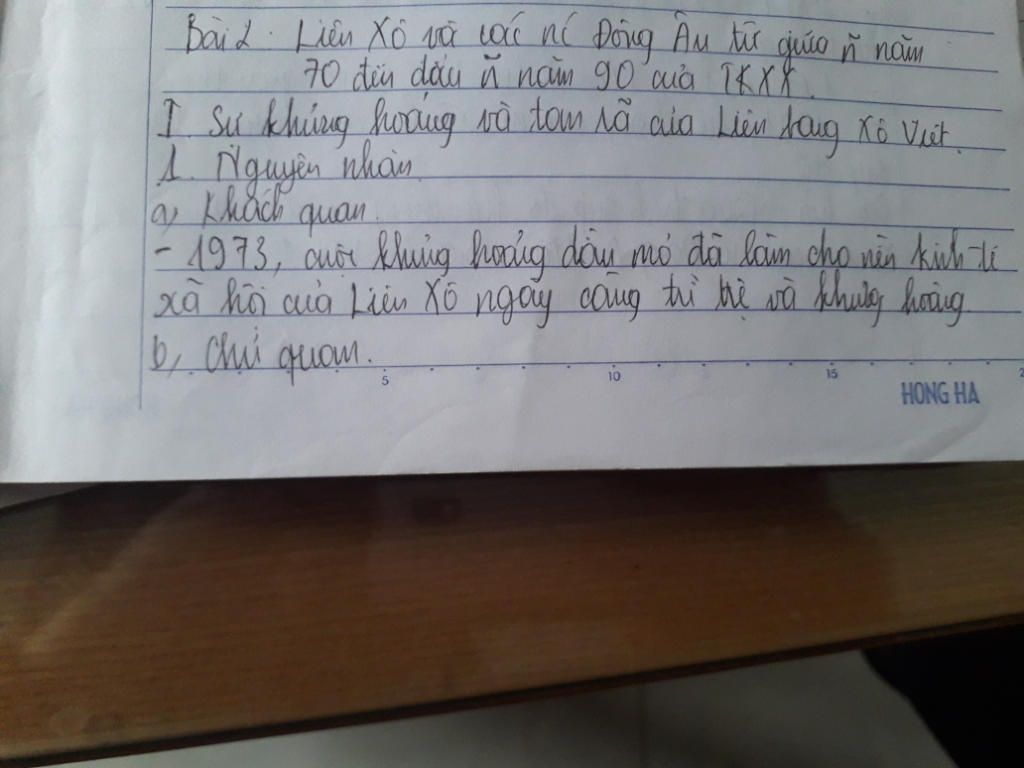 Bài 2. Liên Xô và các nc Đông Âu từ giữa ñ năm
70 đến đầu ñ năm 90 của TKXX.
I Sự khủng hoảng và tan rã của Liên bang Xô Viết.
1. Nguyên nhân
a, Khách quan
- 1973, cuộc khủng hoảng dầu mỏ đã làm cho nền kinh tế
xã hội của Liên Xô ngày càng trì trệ và khủng hoảng.
b, Chủ quan.
5 10 15 2
HONG HA